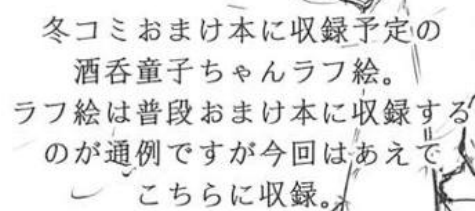 冬コミおまけ本に収録予定の
酒呑童子ちゃんラフ絵。
ラフ絵は普段おまけ本に収録する
のが通例ですが今回はあえて
こちらに収録。